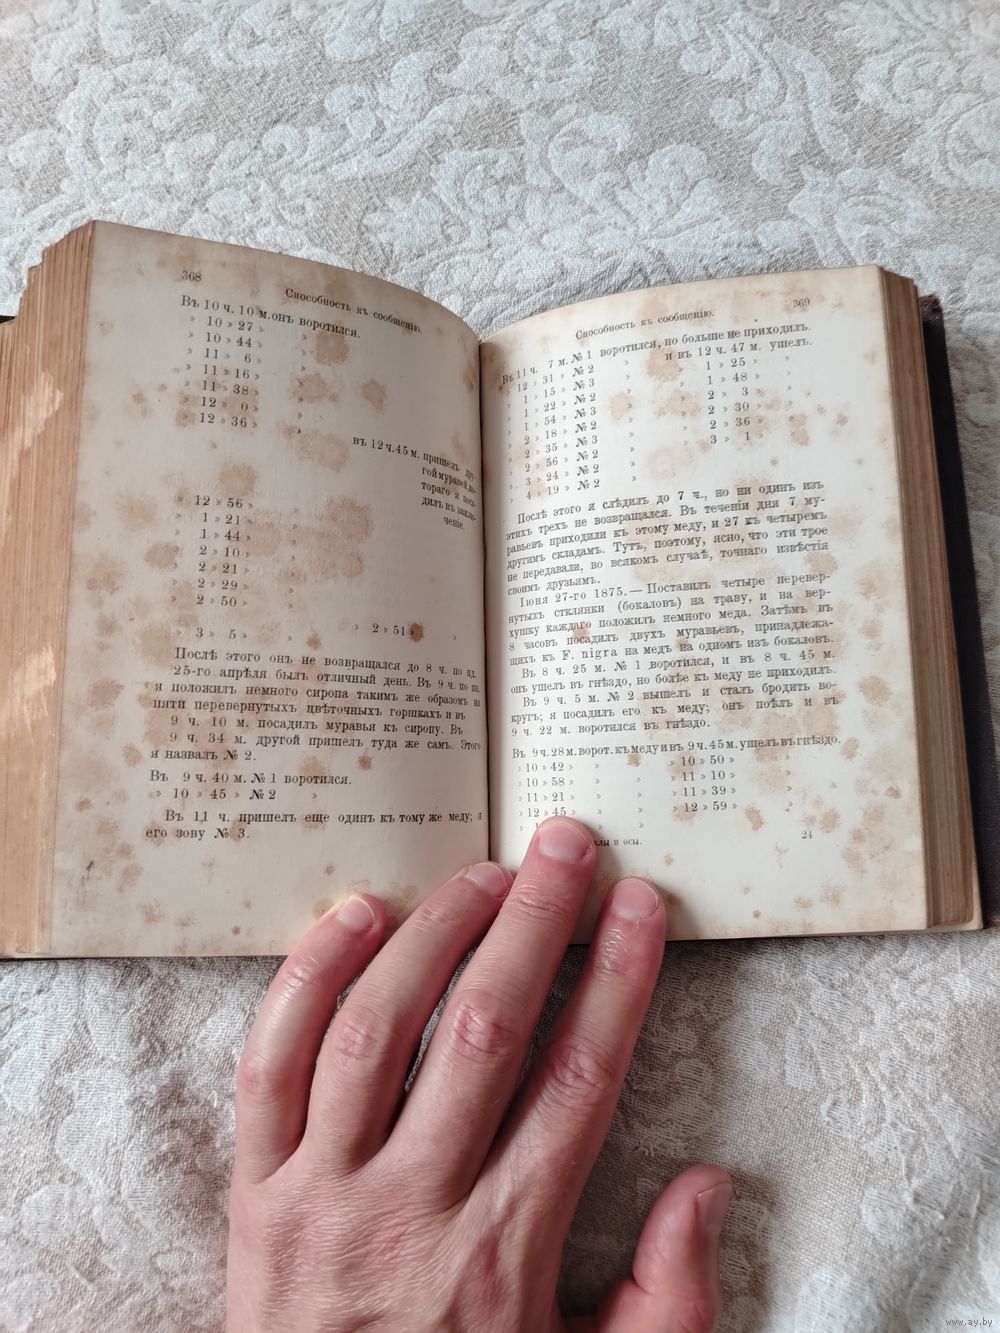 368
Способность къ сообщенію.
Въ 10 ч. 10 м. онъ воротился.
» 10 » 27 » »
» 10 » 44 » »
» 11 » 6 » »
» 11 » 16 » »
» 11 » 38 » »
» 12 » 0 » »
» 12 » 36 » »
въ 12 ч. 45 м. пришелъ дру-
гой муравей, ко-
тораго я поса-
дилъ въ заклю-
ченіе.
» 12 » 56 » »
» 1 » 21 » »
» 1 » 44 » »
» 2 » 10 » »
» 2 » 21 » »
» 2 » 29 » »
» 2 » 50 » »
» 2 » 51 » »
» 3 » 5 » »
Послѣ этого онъ не возвращался до 8 ч. по пд.
25-го апрѣля былъ отличный день. Въ 9 ч. по пд.
я положилъ немного сиропа такимъ же образомъ на
пяти перевернутыхъ цвѣточныхъ горшкахъ и въ
9 ч. 10 м. посадилъ муравья къ сиропу. Въ
9 ч. 34 м. другой пришелъ туда же самъ. Этого
я назвалъ № 2.
Въ 9 ч. 40 м. № 1 воротился.
» 10 » 45 » № 2 »
Въ 11 ч. пришелъ еще одинъ къ тому же меду; я
его зову № 3.
369
Способность къ сообщенію.
Въ 11 ч. 7 м. № 1 воротился, но больше не приходилъ.
» 12 » 31 » № 2 » и въ 12 ч. 47 м. ушелъ.
» 1 » 15 » № 3 » » 1 » 25 » »
» 1 » 22 » № 2 » » 1 » 48 » »
» 1 » 54 » № 3 » » 2 » 3 » »
» 2 » 18 » № 2 » » 2 » 30 » »
» 2 » 35 » № 3 » » 2 » 36 » »
» 2 » 56 » № 2 » » 3 » 1 » »
» 3 » 24 » № 2 »
» 4 » 19 » № 2 »
Послѣ этого я слѣдилъ до 7 ч., но ни одинъ изъ
этихъ трехъ не возвращался. Въ теченіи дня 7 му-
равьевъ приходили къ этому меду, и 27 къ четыремъ
другимъ складамъ. Тутъ, поэтому, ясно, что эти трое
не передавали, во всякомъ случаѣ, точнаго извѣстія
своимъ друзьямъ.
Іюня 27-го 1875. — Поставилъ четыре перевер-
нутыхъ стклянки (бокаловъ) на траву, и на вер-
хушку каждаго положилъ немного меда. Затѣмъ въ
8 часовъ посадилъ двухъ муравьевъ, принадлежа-
щихъ къ F. nigra на медъ на одномъ изъ бокаловъ.
Въ 8 ч. 25 м. № 1 воротился, и въ 8 ч. 45 м.
онъ ушелъ въ гнѣздо, но болѣе къ меду не приходилъ.
Въ 9 ч. 5 м. № 2 вышелъ и сталъ бродить во-
кругъ; я посадилъ его къ меду; онъ поѣлъ и въ
9 ч. 22 м. воротился въ гнѣздо.
Въ 9 ч. 28 м. ворот. къ меду и въ 9 ч. 45 м. ушелъ въ гнѣздо.
» 10 » 42 » » » » 10 » 50 » »
» 10 » 58 » » » » 11 » 10 » »
» 11 » 21 » » » » 11 » 39 » »
» 12 » 45 » » » » 12 » 59 » »
и осы.
24
www.ay.by